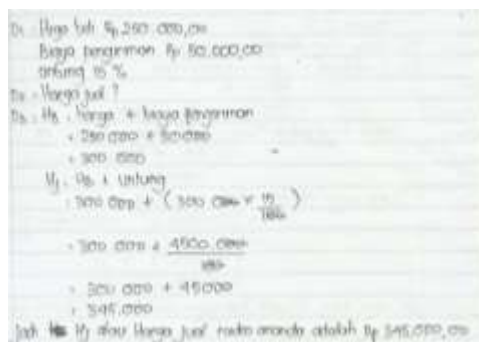 D1 : Harga beli Rp 250.000,00
Biaya pengiriman Rp 50.000,00
untung 15 %
D2 : Harga jual ?
D3 : HB : harga + biaya pengiriman
= 250 000 + 50 000
= 300 000
Hj : HB + untung
= 300 000 + ( 300 000 × 15/100 )
= 300 000 + 4500 000/100
= 300 000 + 45000
= 345.000
Jadi Hj atau Harga jual radio ananda adalah Rp 345.000,00